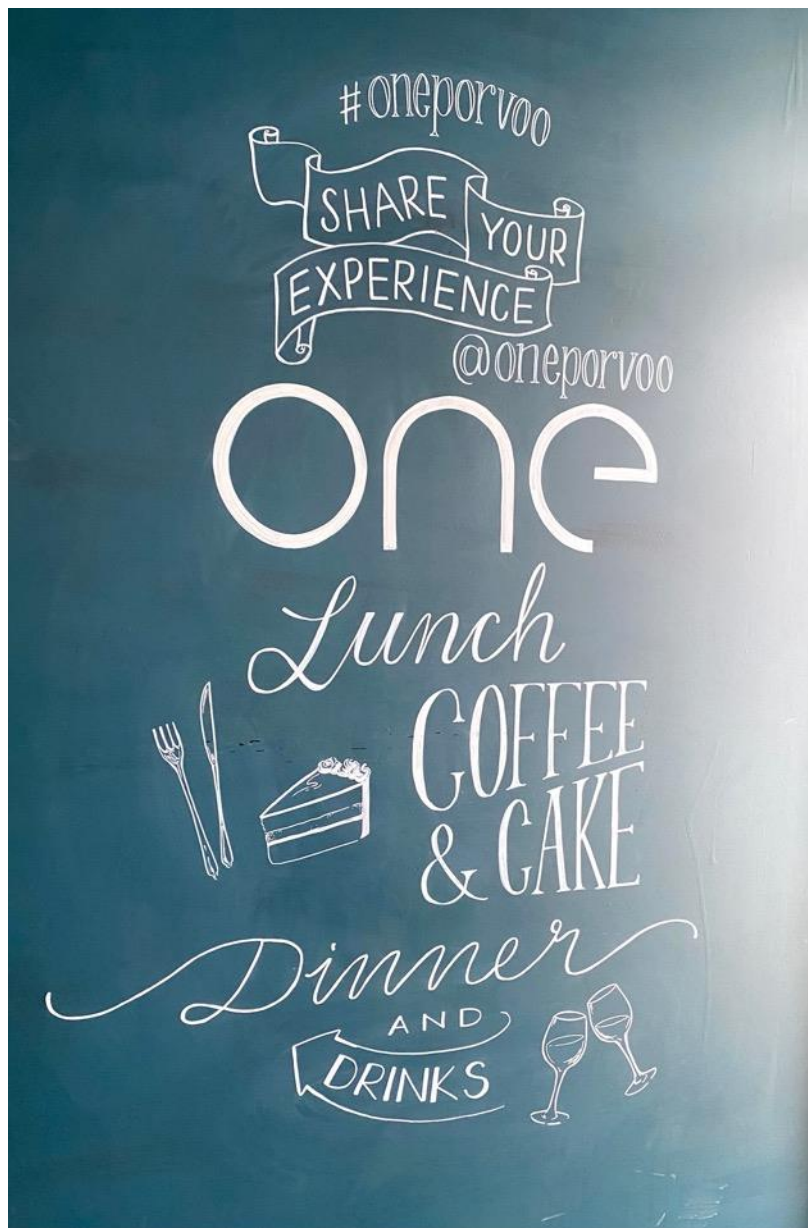 #oneporvoo
SHARE YOUR
EXPERIENCE
@oneporvoo
one
Lunch
COFFEE
& CAKE
Dinner
AND
DRINKS